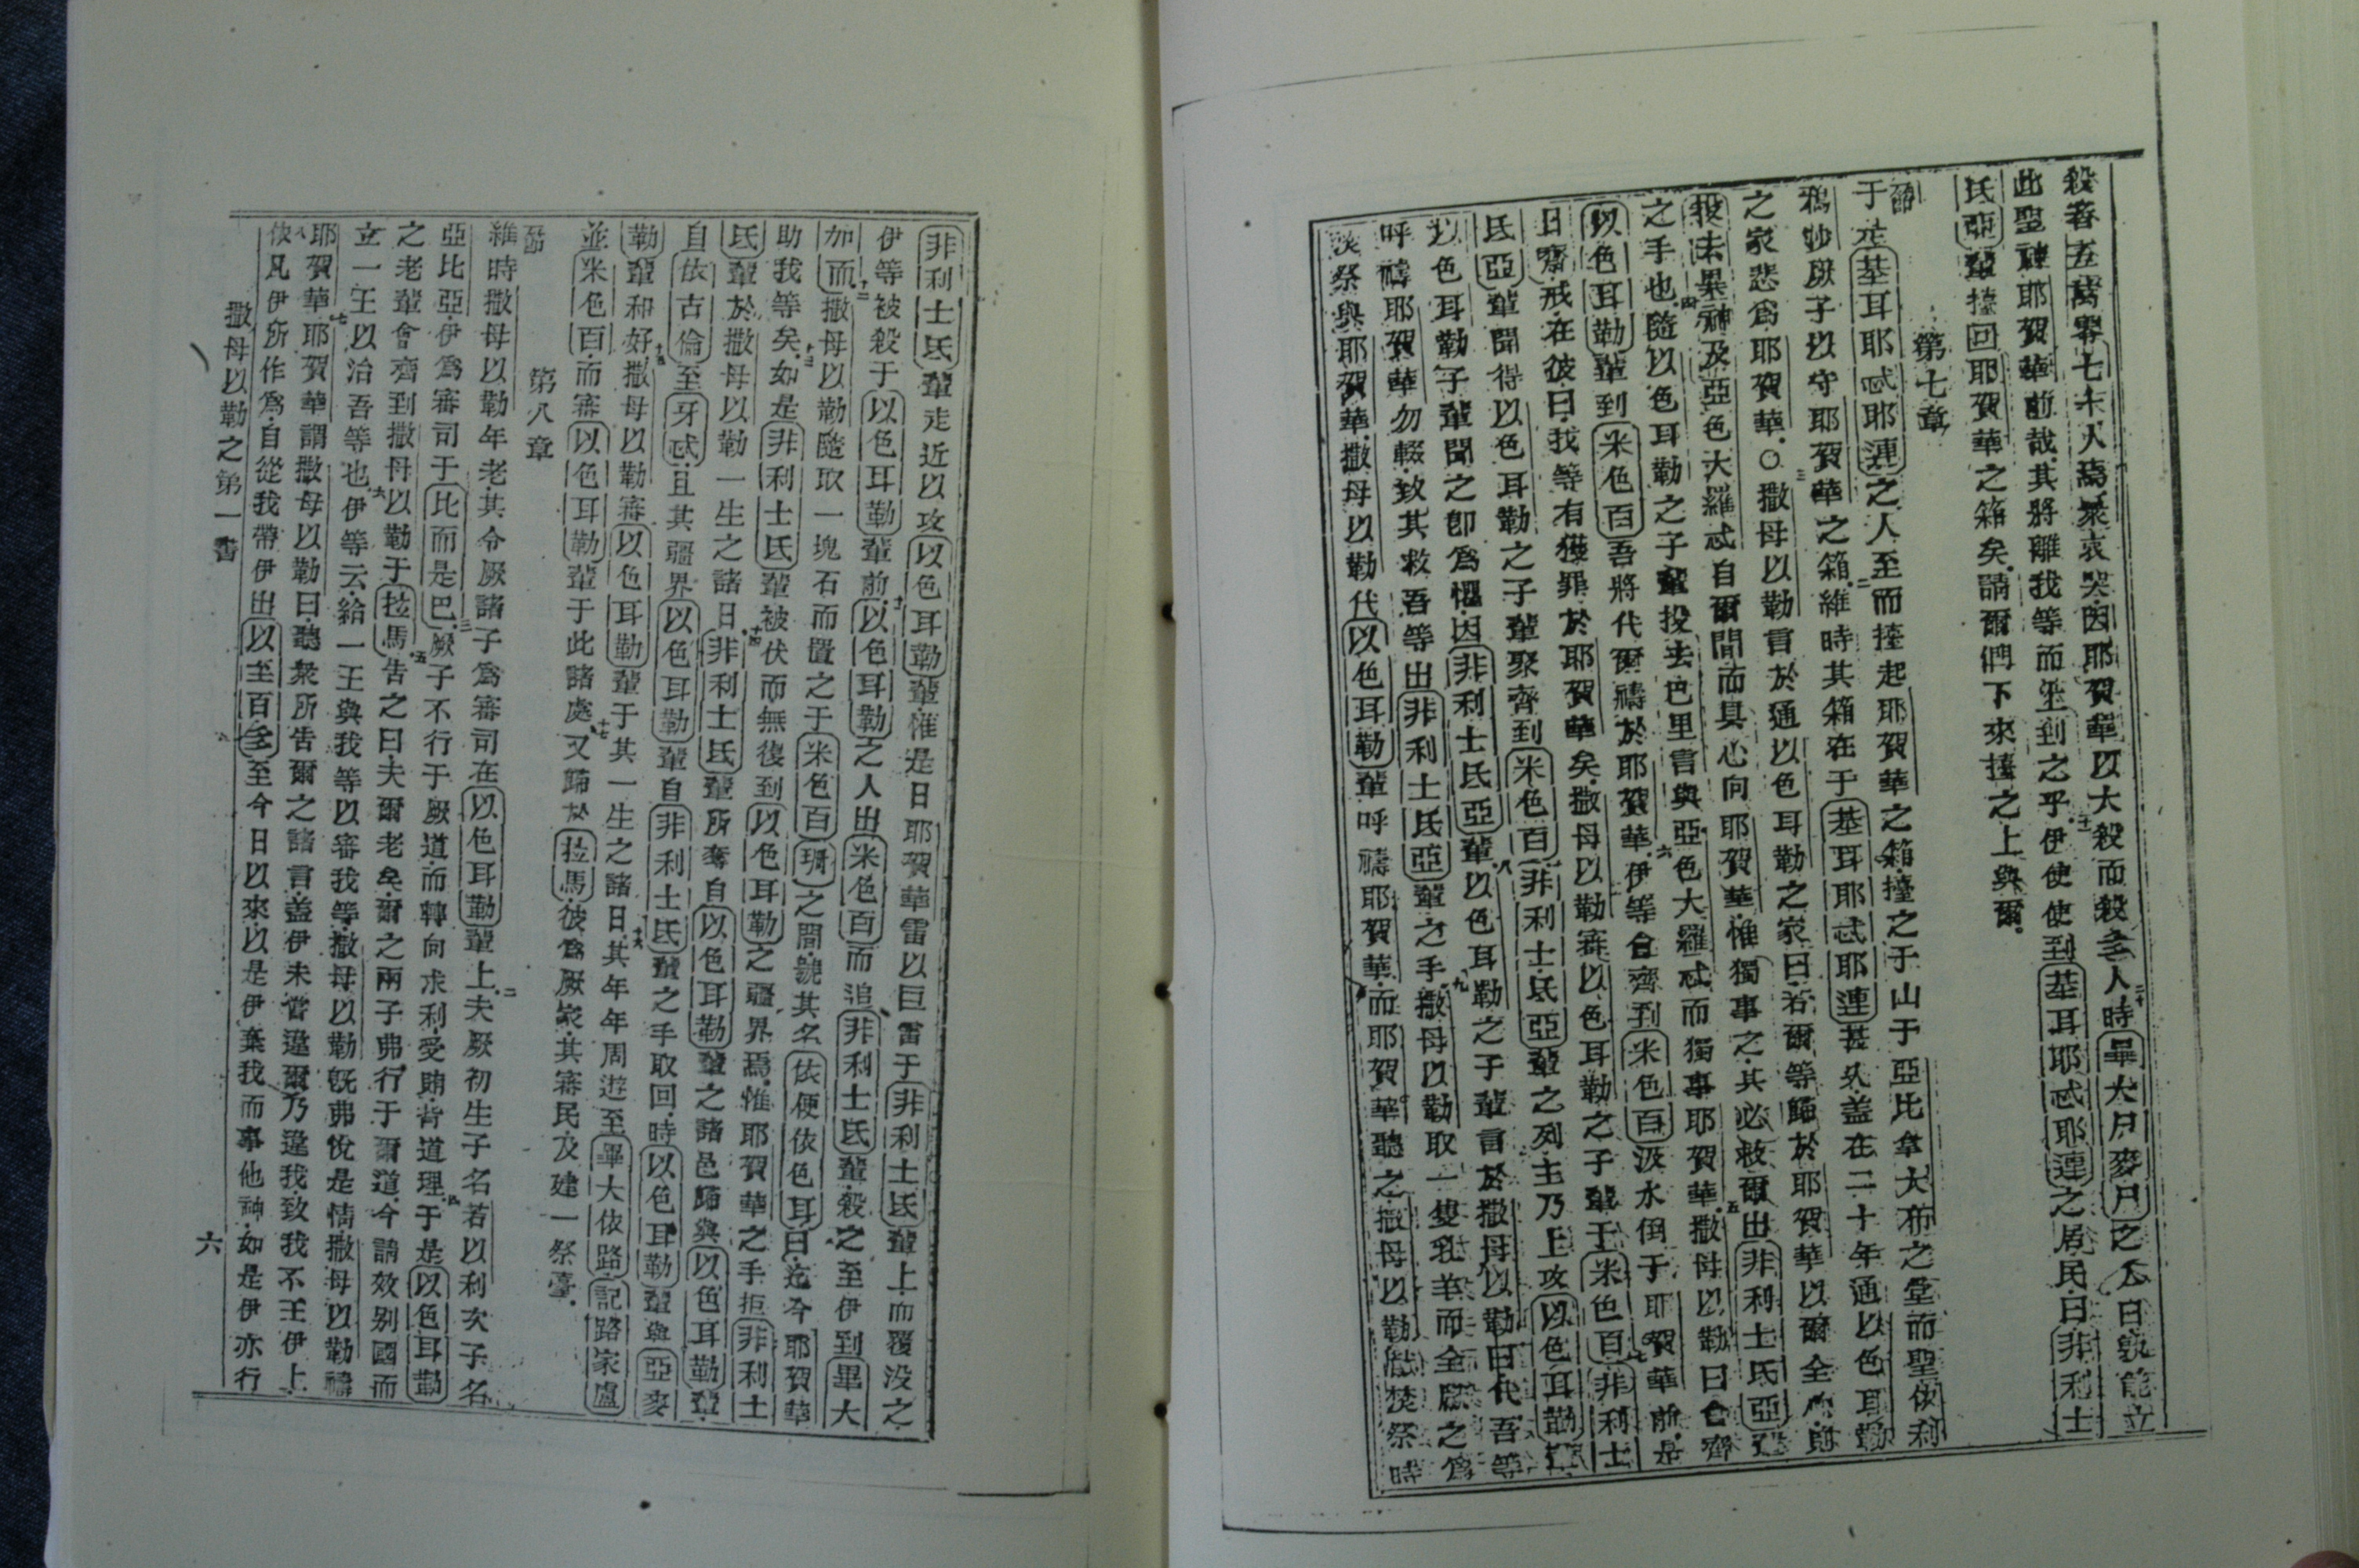 殺者五萬零七十人焉衆哀哭因耶賀華以大殺而殺之人時畢大月麥月之人曰孰能立
此聖神耶賀華前哉其將離我等而至到之乎伊使使到基耳耶忒耶連之居民曰非利士
氏亞輩擡回耶賀華之箱矣請爾們下來擡之上與爾
第七章
于是基耳耶忒耶連之人至而擡起耶賀華之箱擡之于山于亞比拿大布之堂而聖依利
鴉沙厥子以守耶賀華之箱二維時其箱在于基耳耶忒耶連甚久盖在二十年通以色耳勒
之家悲爲耶賀華○三撒母以勒言於通以色耳勒之家曰若爾等歸於耶賀華以爾全心則
投去異神及亞色大羅忒自爾間而具心向耶賀華惟獨事之其必救爾出非利士氏亞輩
之手也四隨以色耳勒之子輩投去巴里言與亞色大羅忒而獨事耶賀華五撒母以勒曰會齊
以色耳勒輩到米色百吾將代爾禱於耶賀華六伊等會齊到米色百汲水倒于耶賀華前是
日齋戒在彼曰我等有獲罪於耶賀華矣撒母以勒審以色耳勒之子輩于米色百七非利士
氏亞輩聞得以色耳勒之子輩聚齊到米色百非利士氏亞輩之列主乃上攻以色耳勒輩
以色耳勒子輩聞之卽爲懼因非利士氏亞輩八以色耳勒之子輩言於撒母以勒曰代吾等
呼禱耶賀華勿輟致其救吾等出非利士氏亞輩之手九撒母以勒取一隻乳羊而全獻之爲
焚祭與耶賀華撒母以勒代以色耳勒輩呼禱耶賀華而耶賀華聽之撒母以勒獻焚祭時
非利士氏輩走近以攻以色耳勒輩惟是日耶賀華雷以巨雷于非利士氏輩上而覆没之
伊等被殺于以色耳勒輩前十一以色耳勒之人出米色百而追非利士氏輩殺之至伊到畢大
加而十二撒母以勒隨取一塊石而置之于米色百珊之間號其名依便依色耳曰迄今耶賀華
助我等矣十三如是非利士氏輩被伏而無復到以色耳勒之疆界焉惟耶賀華之手拒非利士
氏輩於撒母以勒一生之諸日十四非利士氏輩所奪自以色耳勒輩之諸邑歸與以色耳勒輩
自依古倫至牙忒且其疆界以色耳勒輩自非利士氏輩之手取回時以色耳勒輩與亞麥
勒輩和好十五撒母以勒審以色耳勒輩于其一生之諸日十六其年年周遊至畢大依路記路家盧
並米色百而審以色耳勒輩于此諸處十七又歸於拉馬彼爲厥家其審民及建一祭臺
第八章
維時撒母以勒年老其令厥諸子爲審司在以色耳勒輩上二夫厥初生子名若以利次子名
亞比亞伊爲審司于比而是巴三厥子不行于厥道而轉向求利受賄背道理四于是以色耳勒
之老輩會齊到撒母以勒于拉馬五告之曰夫爾老矣爾之兩子弗行于爾道今請效别國而
立一王以治吾等也六伊等云給一王與我等以審我等撒母以勒旣弗悅是情撒母以勒禱
耶賀華七耶賀華謂撒母以勒曰聽衆所告爾之諸言盖伊未嘗違爾乃違我致我不王伊上
八依凡伊所作爲自從我帶伊出以至百多至今日以來以是伊棄我而事他神如是伊亦行
撒母以勒之第一書 六